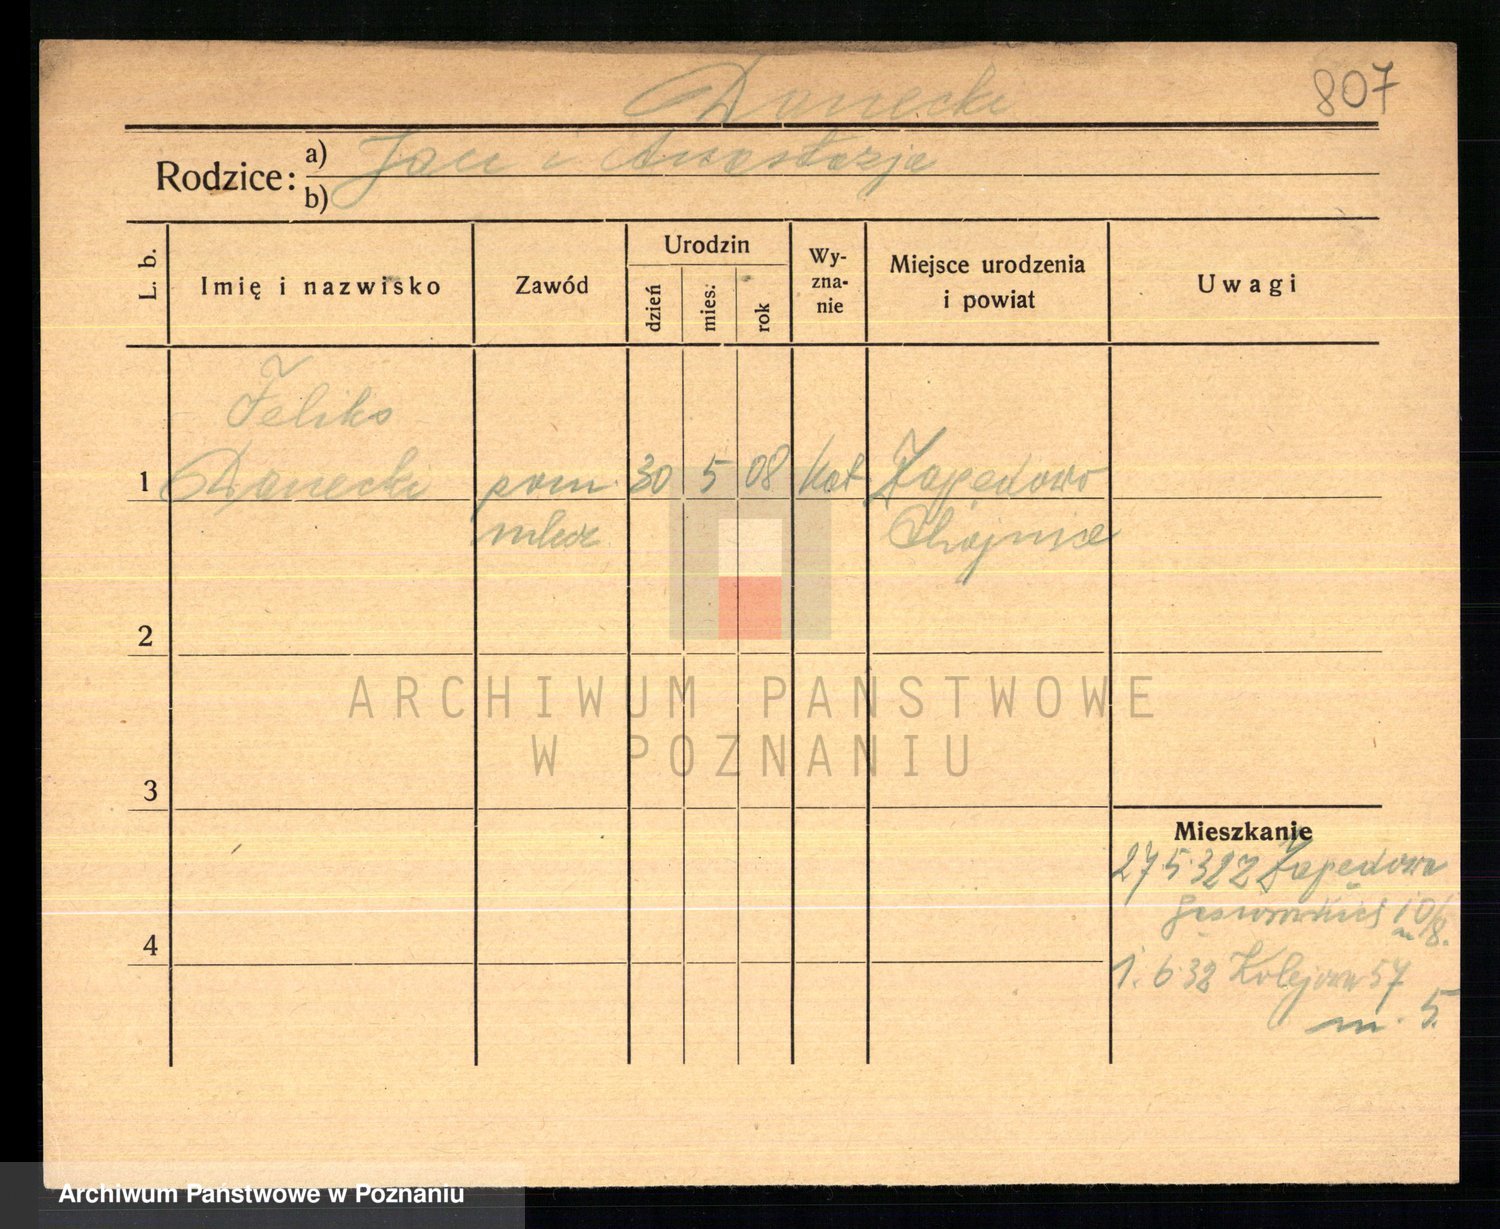 807
Danecki
Rodzice: a) Jan i Anastazja
b)
L. b.
Imię i nazwisko
Zawód
Urodzin
dzień
mies.
rok
Wy-
zna-
nie
Miejsce urodzenia
i powiat
Uwagi
Feliks
1 Danecki pom 30 5 08 kat Zapędowo
mlecz Chojnice
2
ARCHIWUM PAŃSTWOWE
W POZNANIU
3
Mieszkanie
27 5 32 z Zapędowa
10/8.
4
1. 6 32 Kolejowa 57
m. 5.
Archiwum Państwowe w Poznaniu